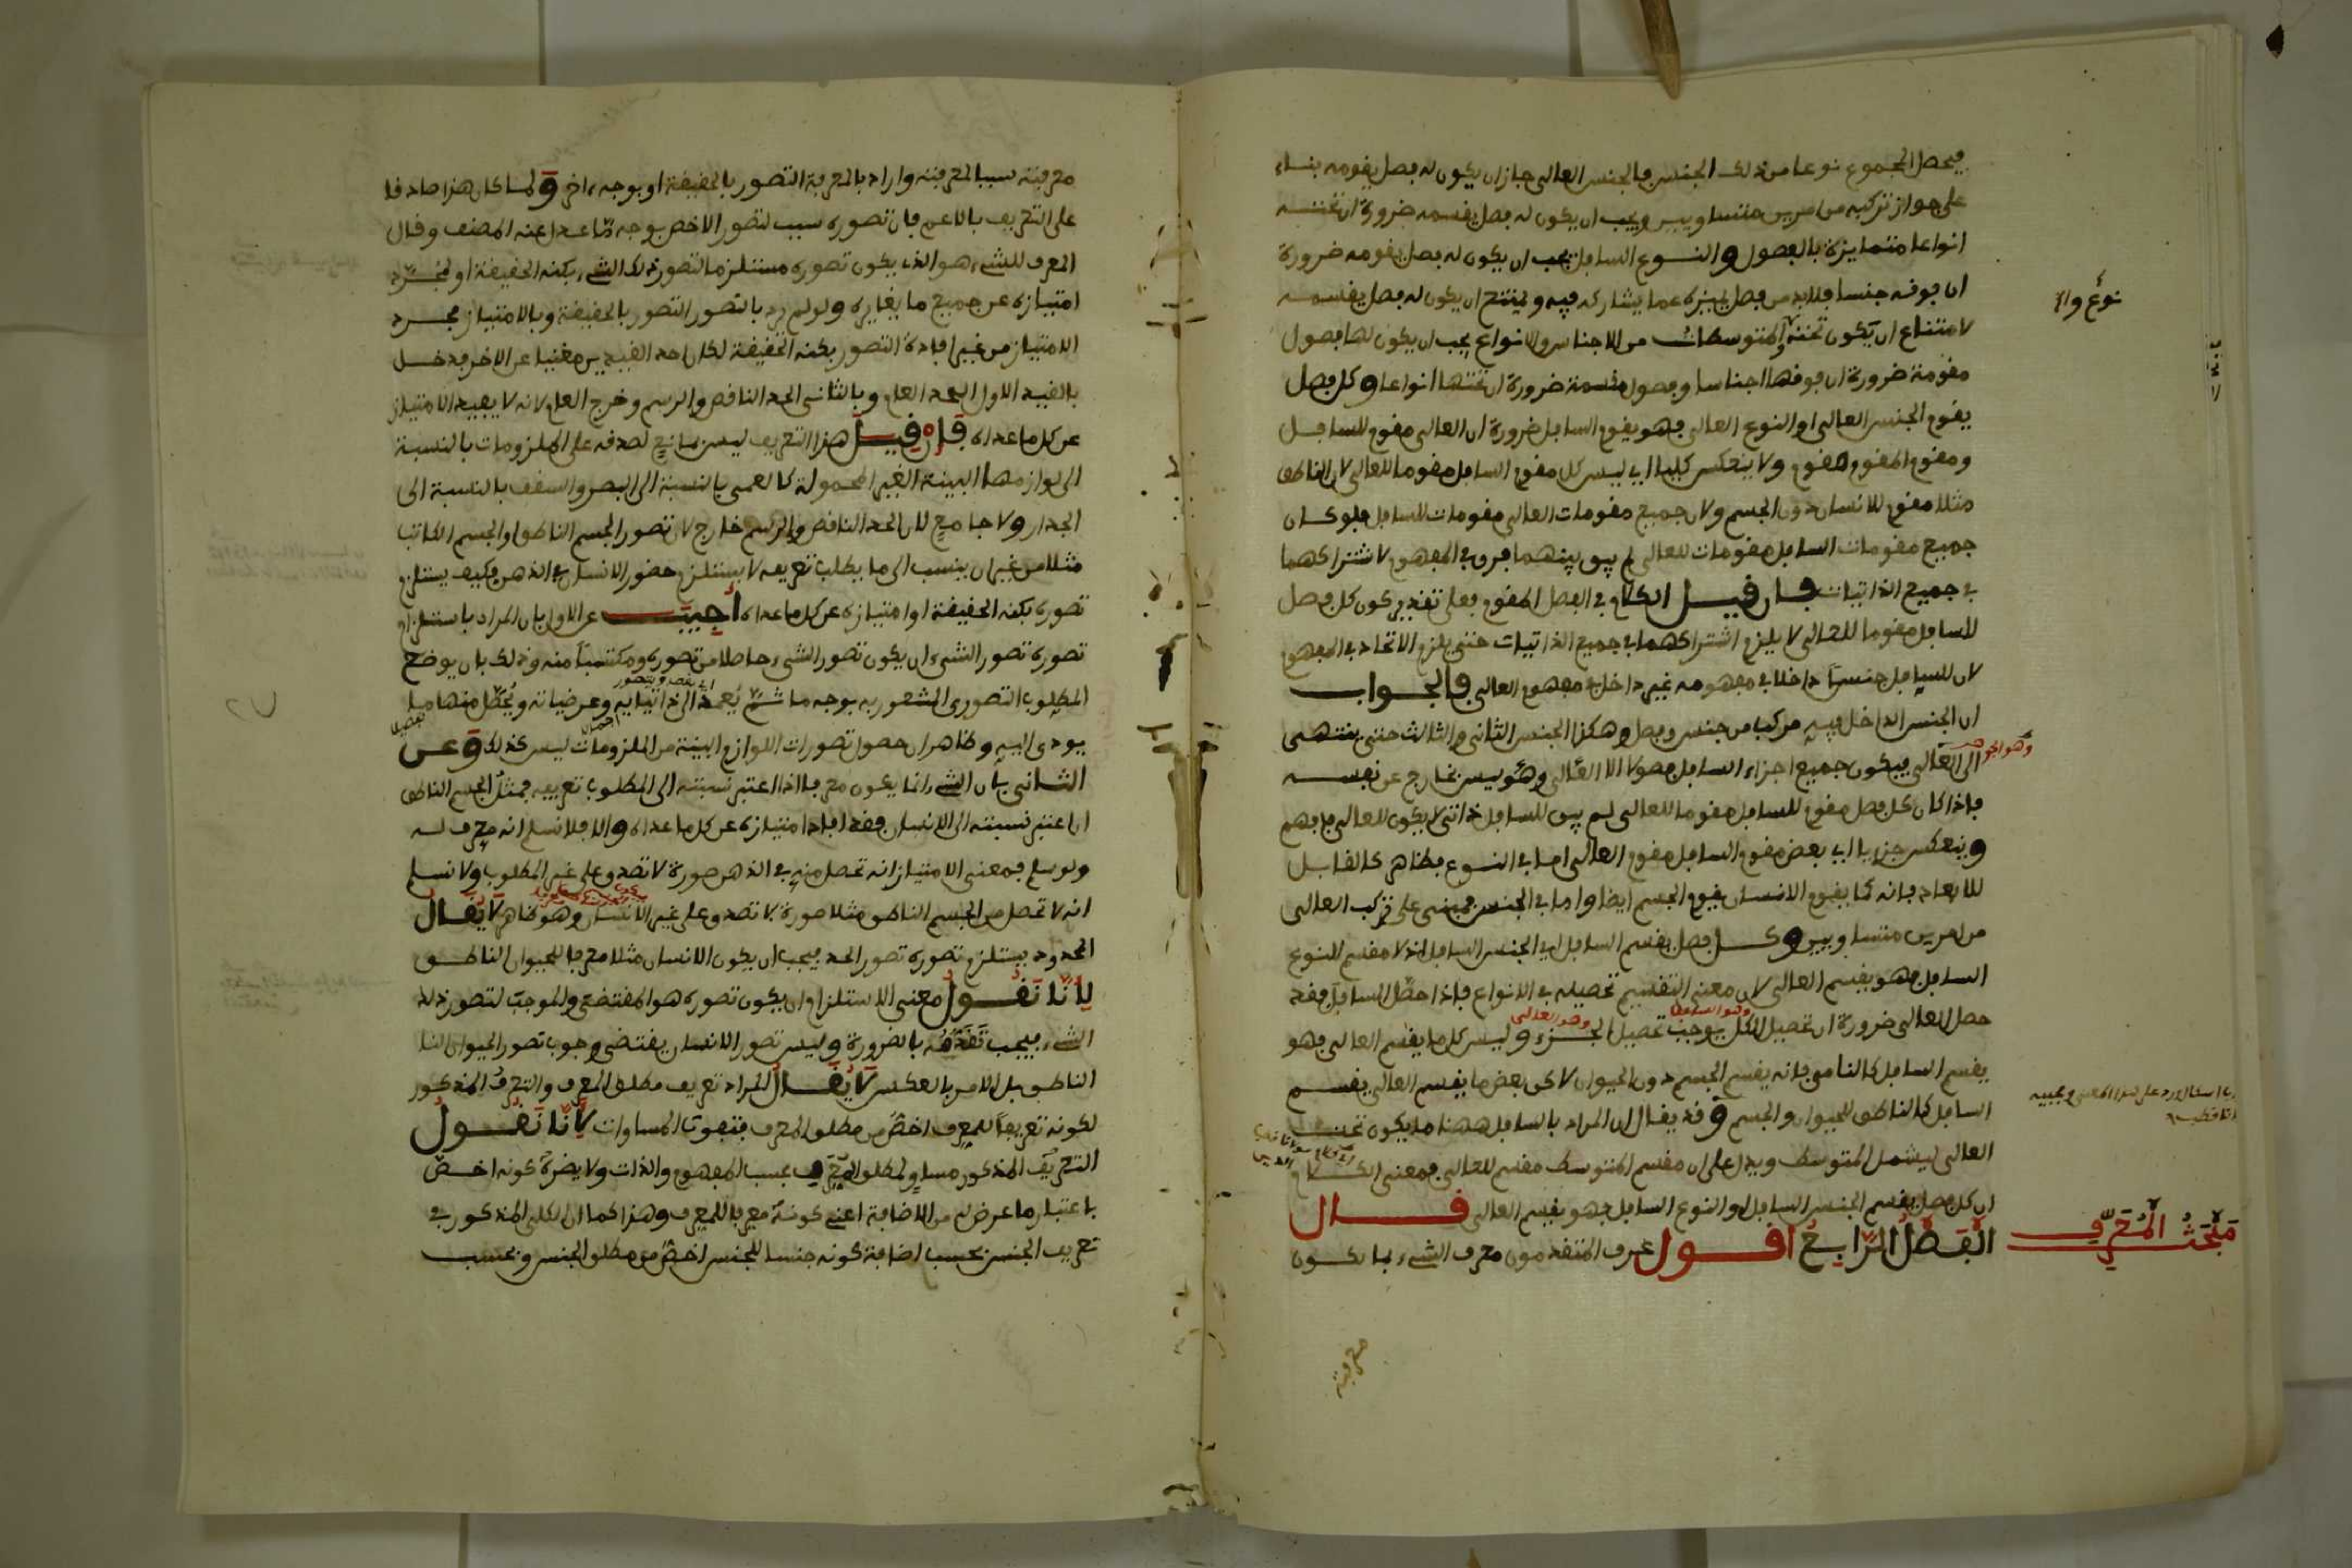 فيحصل المجموع نوعا من ذلك الجنس فالجنس العالى جاز ان يكون له فصل يقومه بناء
على جواز تركبه من امرين متساويين ويجب ان يكون له فصل يقسمه ضرورة ان تحته
انواعا متمايزة بالفصول والنوع السافل يجب ان يكون له فصل يقومه ضرورة
ان فوقه جنسا فلابد من فصل يميزه عما يشاركه فيه ويمتنع ان يكون له فصل يقسمه
لامتناع ان يكون تحته والمتوسطات من الاجناس والانواع يجب ان يكون لها فصول
نوع والا
مقومة ضرورة ان فوقها اجناسا وفصول مقسمة ضرورة ان تحتها انواعا وكل فصل
يقوم الجنس العالى او النوع العالى فهو يقوم السافل ضرورة ان العالى مقوم للسافل
ومقوم المقوم مقوم ولا ينعكس كليا اى ليس كل مقوم السافل مقوما للعالى لان الناطق
مثلا مقوم للانسان دون الجسم ولان جميع مقومات العالى مقومات للسافل فلو كان
جميع مقومات السافل مقومات للعالى لم يبق بينهما فرق فى المفهوم لاشتراكهما
فى جميع الذاتيات فان قيل الكلام فى الفصل المقوم فعلى تقدير كون كل فصل
للسافل مقوما للعالى لا يلزم اشتراكهما فى جميع الذاتيات حتى يلزم الاتحاد فى المفهوم
لان للسافل جنسا داخلا فى مفهومه غير داخل فى مفهوم العالى فالجواب
ان الجنس الداخل فيه مركب من جنس وفصل وهكذا الجنس الثانى والثالث حتى ينتهى
الى العالى فيكون جميع اجزاء السافل فصولا الا العالى وهو ليس بخارج عن نفسه
وهو الجوهر
فاذا كان كل فصل مقوم للسافل مقوما للعالى لم يبق للسافل ذاتى لا يكون للعالى فافهم
وينعكس جزءيا اى بعض مقوم السافل مقوم العالى اما فى النوع فظاهر كالقابل
للابعاد فانه كما يقوم الانسان يقوم الجسم ايضا واما فى الجنس فمبنى على تركب العالى
من امرين متساويين وكل فصل يقسم السافل اى الجنس السافل اذ لا مقسم للنوع
السافل فهو يقسم العالى لان معنى التقسيم تحصيله فى الانواع فاذا حصل السافل فقد
حصل العالى ضرورة ان تحصيل الكل يوجب تحصيل الجزء وليس كل ما يقسم العالى فهو
وهو السافل
وهو العالى
يقسم السافل كالنامى فانه يقسم الجسم دون الحيوان لاكن بعض ما يقسم العالى يقسم
السافل كالناطق للحيوان والجسم وقد يقال ان المراد بالسافل ههنا ما يكون تحت
العالى ليشمل المتوسط ويدل على ان مقسم المتوسط مقسم للعالى فمعنى الكلام
ان كل فصل يقسم الجنس السافل او النوع السافل فهو يقسم العالى قال
الفصل الرابع اقول عرف المتقدمون معرف الشىء بما تكون
مبحث المعرف
معرفته
معرفته سببا لمعرفته واراد بالمعرفة التصور بالحقيقة او بوجه اخر ولما كان هذا صادقا
على التعريف بالاعم فان تصوره سبب لتصور الاخص بوجه ما عدل عنه المصنف وقال
المعرف للشىء هو الذى يكون تصوره مستلزما لتصور ذلك الشىء بكنه الحقيقة او لمجرد
امتيازه عن جميع ما يغايره ولو لم يرد بالتصور التصور بالحقيقة وبالامتياز مجرد
الامتياز من غير افادة التصور بكنه الحقيقة لكان احد القيدين مغنيا عن الاخر فدخل
بالقيد الاول الحد العام وبالثانى الحد الناقص والرسم وخرج العام لانه لا يفيد الامتياز
عن كل ما عداه فان قيل هذا التعريف ليس بمانع لصدقه على الملزومات بالنسبة
الى لوازمها البينة الغير المحمولة كالعمى بالنسبة الى البصر والسقف بالنسبة الى
الجدار ولا جامع لان الحد الناقص والرسم خارج لان تصور الجسم الناطق او الجسم الكاتب
مثلا من غير ان ينسب الى ما يطلب تعريفه لا يستلزم حضور الانسان فى الذهن فكيف يستلزم
تصوره بكنه الحقيقة او امتيازه عن كل ما عداه اجيب عن الاول بان المراد باستلزام
تصوره تصور الشىء ان يكون تصور الشىء حاصلا من تصوره ومكتسبا منه وذلك بان يوضع
المطلوب التصورى المشعور به بوجه ما ثم يعمد الى ذاتياته وعرضياته ويحصل منها ما
اى يقصد ويتصور
يودى اليه وظاهر ان حصول تصورات اللوازم البينة من الملزومات ليس كذلك وعن
الثانى بان الشىء انما يكون معرفا اذا اعتبر نسبته الى المطلوب تعريفه فمثل الجسم الناطق
ان اعتبر نسبته الى الانسان فقد افاد امتيازه عن كل ما عداه والا فلا نسلم انه معرف له
ولو سلم فمعنى الامتياز انه تحصل منه فى الذهن صورة لا تصدق على غير المطلوب ولا نسلم
انه لا تحصل من الجسم الناطق مثلا صورة لا تصدق على غير الانسان وهو ظاهر لا يقال
المحدود يستلزم تصوره تصور الحد فيجب ان يكون الانسان مثلا معرفا للحيوان الناطق
لانا نقول معنى الاستلزام ان يكون تصوره هو المقتضى والموجب لتصور ذلك
الشىء فيجب تقدمه بالضرورة وليس تصور الانسان يقتضى وجوب تصور الحيوان النا
الناطق بل الامر بالعكس لا يقال المراد تعريف مطلق المعرف والتعريف المذكور
لكونه تعريفا للمعرف اخص من مطلق المعرف فتفوت المساوات لانا نقول
التعريف المذكور مساو لمطلق المعرف بحسب المفهوم والذات ولا يضره كونه اخص
باعتبار ما عرض له من الاضافة اعنى كونه معرفا للمعرف وهذا كما ان الكلى المذكور فى
تعريف الجنس بحسب اضافة كونه جنسا للجنس اخص من مطلق الجنس وبحسب